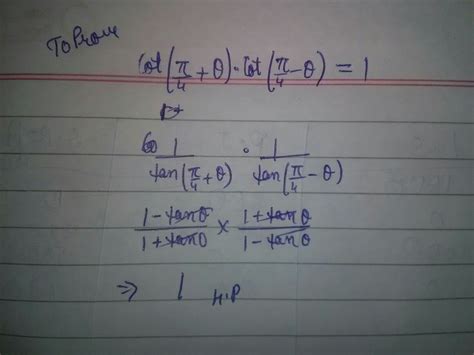 To Prove
Cot(π/4 + θ) · Cot(π/4 - θ) = 1
1/tan(π/4 + θ) · 1/tan(π/4 - θ)
1 - tanθ/1 + tanθ × 1 + tanθ/1 - tanθ
⇒ 1 H.P